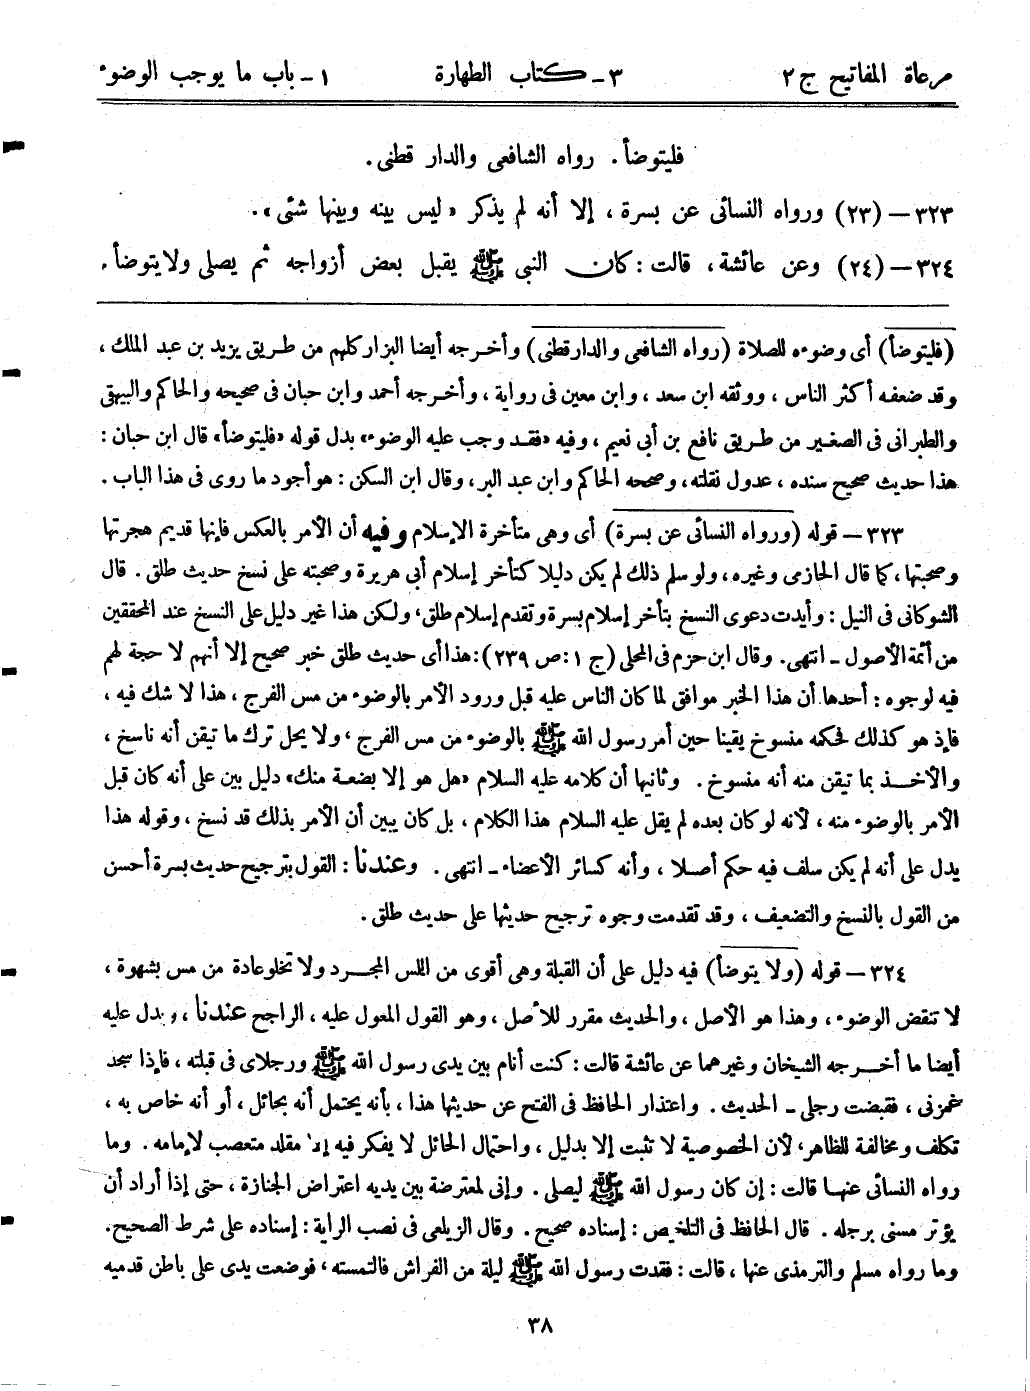 مرعاة المفاتيح ج ٢ ٣ - كتاب الطهارة ١ - باب ما يوجب الوضوء
فليتوضأ. رواه الشافعى والدار قطنى.
٣٢٣ – (٢٣) ورواه النسائى عن بسرة ، إلا أنه لم يذكر «ليس بينه وبينها شئى».
٣٢٤ – (٢٤) وعن عائشة، قالت: كان النبى ﷺ يقبل بعض أزواجه ثم يصلى ولا يتوضأ.
(فليتوضأ) أى وضوءه للصلاة (رواه الشافعى والدارقطنى) وأخرجه أيضا البزار كلهم من طريق يزيد بن عبد الملك ،
وقد ضعفه أكثر الناس ، ووثقه ابن سعد ، وابن معين فى رواية ، وأخرجه أحمد وابن حبان فى صحيحه والحاكم والبيهقى
والطبرانى فى الصغير من طريق نافع بن أبى نعيم ، وفيه «فقد وجب عليه الوضوء» بدل قوله «فليتوضأ» قال ابن حبان :
هذا حديث صحيح سنده ، عدول نقلته، وصححه الحاكم وابن عبد البر، وقال ابن السكن : هو أجود ما روى فى هذا الباب .
٣٢٣ – قوله (ورواه النسائى عن بسرة) أى وهى متأخرة الإسلام وفيه أن الأمر بالعكس فإنها قديم هجرتها
وصحبتها ، كما قال الحازمى وغيره، ولو سلم ذلك لم يكن دليلا كتأخر إسلام أبى هريرة وصحبته على نسخ حديث طلق. قال
الشوكانى فى النيل : وأيدت دعوى النسخ بتأخر إسلام بسرة وتقدم إسلام طلق، ولكن هذا غير دليل على النسخ عند المحققين
من أئمة الأصول - انتهى. وقال ابن حزم فى المحلى (ج ١: ص ٢٣٩): هذا أى حديث طلق خبر صحيح إلا أنهم لا حجة لهم
فيه لوجوه : أحدها أن هذا الخبر موافق لما كان الناس عليه قبل ورود الأمر بالوضوء من مس الفرج ، هذا لا شك فيه ،
فإذ هو كذلك فحكمه منسوخ يقينا حين أمر رسول الله ﷺ بالوضوء من مس الفرج ، ولا يحل ترك ما تيقن أنه ناسخ ،
والأخذ بما تيقن منه أنه منسوخ . وثانيها أن كلامه عليه السلام «هل هو إلا بضعة منك» دليل بين على أنه كان قبل
الأمر بالوضوء منه ، لأنه لو كان بعده لم يقل عليه السلام هذا الكلام ، بل كان يبين أن الأمر بذلك قد نسخ ، وقوله هذا
يدل على أنه لم يكن سلف فيه حكم أصلا ، وأنه كسائر الأعضاء - انتهى . وعندنا : القول بترجيح حديث بسرة أحسن
من القول بالنسخ والتضعيف ، وقد تقدمت وجوه ترجيح حديثها على حديث طلق .
٣٢٤ – قوله (ولا يتوضأ) فيه دليل على أن القبلة وهى أقوى من اللمس المجرد ولا تخلو عادة من مس بشهوة ،
لا تنقض الوضوء ، وهذا هو الأصل ، والحديث مقرر للأصل ، وهو القول المعول عليه ، الراجح عندنا ، ويدل عليه
أيضا ما أخرجه الشيخان وغيرهما عن عائشة قالت : كنت أنام بين يدى رسول الله ﷺ ورجلاى فى قبلته ، فإذا سجد
غمزنى ، فقبضت رجلى - الحديث . واعتذار الحافظ فى الفتح عن حديثها هذا ، بأنه يحتمل أنه بحائل ، أو أنه خاص به ،
تكلف ومخالفة للظاهر، لأن الخصوصية لا تثبت إلا بدليل ، واحتمال الحائل لا يفكر فيه إلا مقلد متعصب لإمامه . وما
رواه النسائى عنها قالت : إن كان رسول الله ﷺ ليصلى . وإنى لمعترضة بين يديه اعتراض الجنازة ، حتى إذا أراد أن
يؤتر مسنى برجله . قال الحافظ فى التلخيص : إسناده صحيح . وقال الزيلعى فى نصب الراية : إسناده على شرط الصحيح.
وما رواه مسلم والترمذى عنها ، قالت : فقدت رسول الله ﷺ ليلة من الفراش فالتمسته ، فوضعت يدى على باطن قدميه
٣٨